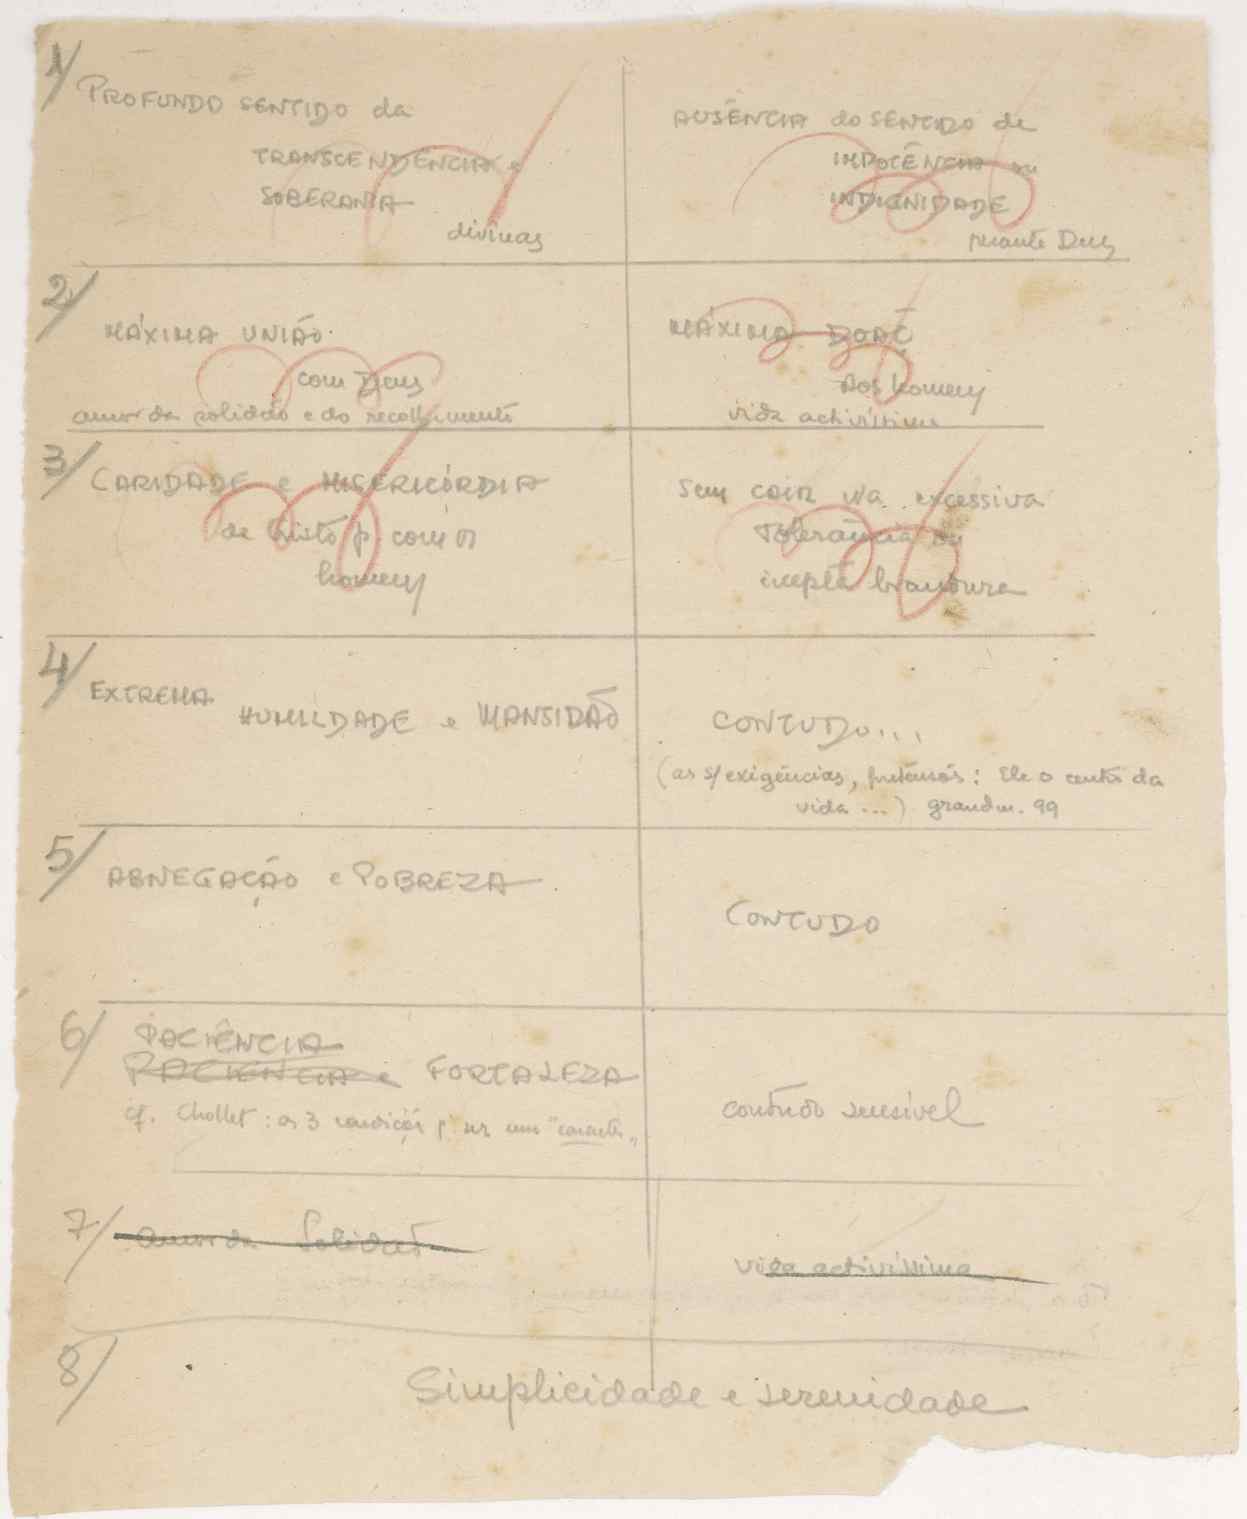 1/
PROFUNDO SENTIDO da
TRANSCENDÊNCIA e
SOBERANIA
divinas
AUSÊNCIA do SENTIDO de
IMPOTÊNCIA ou
INDIGNIDADE
perante Deus
2/
MÁXIMA UNIÃO
com Deus
amor da solidão e do recolhimento
MÁXIMA DOAÇ
aos homens
vida activíssima
3/
CARIDADE e MISERICÓRDIA
de Cristo p. com os
homens
Sem cair na excessiva
tolerância ou
inepta brandura
4/
EXTREMA
HUMILDADE e MANSIDÃO
CONTUDO...
(as s/ exigências, pretensões: Ele o centro da
vida ...) grandm. 99
5/
ABNEGAÇÃO e POBREZA
CONTUDO
6/
PACIÊNCIA
PACIÊNCIA e FORTALEZA
cf. Chollet: as 3 condições p. ser um "caracter"
contudo sensível
7/
amor da Solidão
vida activíssima
8/
Simplicidade e serenidade